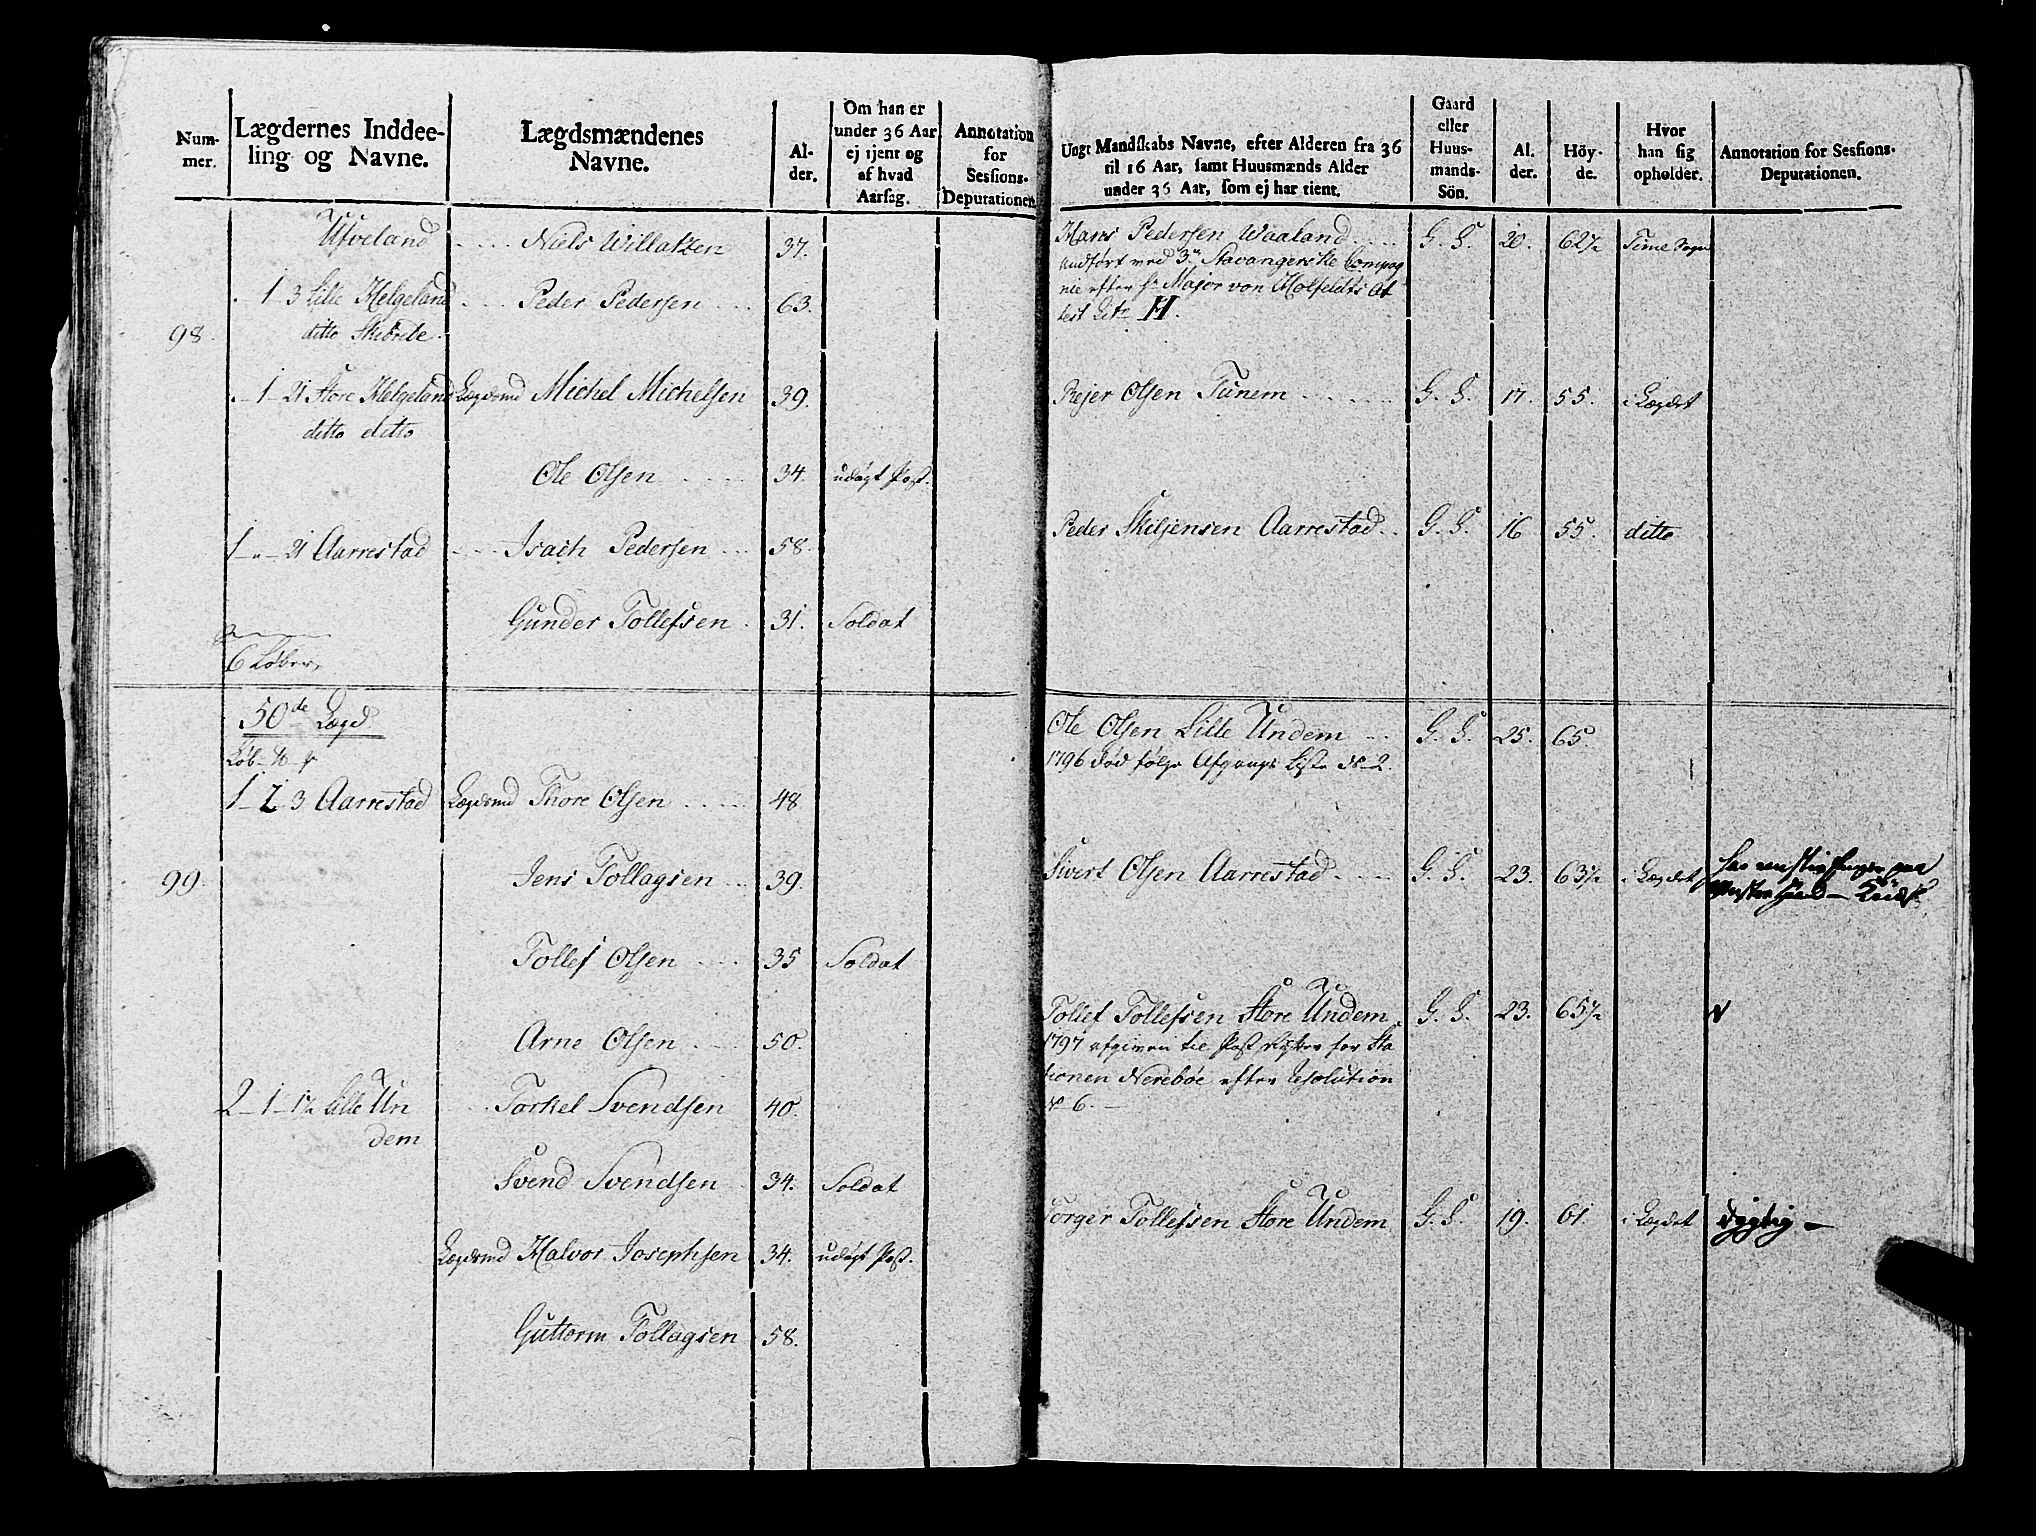 Num-
mer.
Lægdernes Inddee-
ling og Navne.
Lægdsmændenes
Navne.
Al-
der.
Om han er
under 36 Aar
ej tjent og
af hvad
Aarsag.
Annotation
for
Sessions-
Deputationen.
Ufveland Niels Willatzen 37.
1 3 Lille Helgeland Peder Pedersen 63.
98. ditto Skibrede
1 21 Store Helgeland Lægdsmd Michel Michelsen 39.
ditto ditto
Ole Olsen 34. udøgt Post.
1 21 Aarrestad Isach Pedersen 58.
Gunder Tollefsen 31. Soldat
6 Løber
50de Lægd
Løb
1 2 3 Aarrestad Lægdsmd Thore Olsen 48
99. Jens Tollagsen 39.
Tollef Olsen 35 Soldat
Arne Olsen 50.
2 1 1½ Lille Un Torkel Svendsen 40.
dem
Svend Svendsen 34. Soldat
Lægdsmd Halvor Josephsen 34. udøgt Post.
Guttorm Tollagsen 58.
Ungt Mandskabs Navne, efter Alderen fra 36
til 16 Aar, samt Huusmænds Alder
under 36 Aar, som ej har tient.
Gaard
eller
Huus-
mands-
Sön.
Al-
der.
Höy-
de.
Hvor
han sig
opholder.
Annotation for Sessions-
Deputationen.
Hans Pedersen Waaland G. S. 20. 62½ Time Sogn
andført ved 3de Stavangerske Compag
nie efter Hr Major von Holfeldts At
test Litr H.
Rejer Olsen Tunem G. S. 17. 55. i Lægdet
Peder Skiljensen Aarrestad G. S. 16 55. ditto
Ole Olsen Lille Undem G. S. 25. 65.
1796 død følge Afgangs Liste No 2.
Sivert Olsen Aarrestad G. S. 23. 63½ i Lægdet
Tollef Tollefsen Store Undem G. S. 23. 65½
1797 afgiven til Post for Sta
tionen Nerebøe efter Resolution
No 6.
Torger Tollefsen Store Undem G. S. 19. 61. i Lægdet dygtig